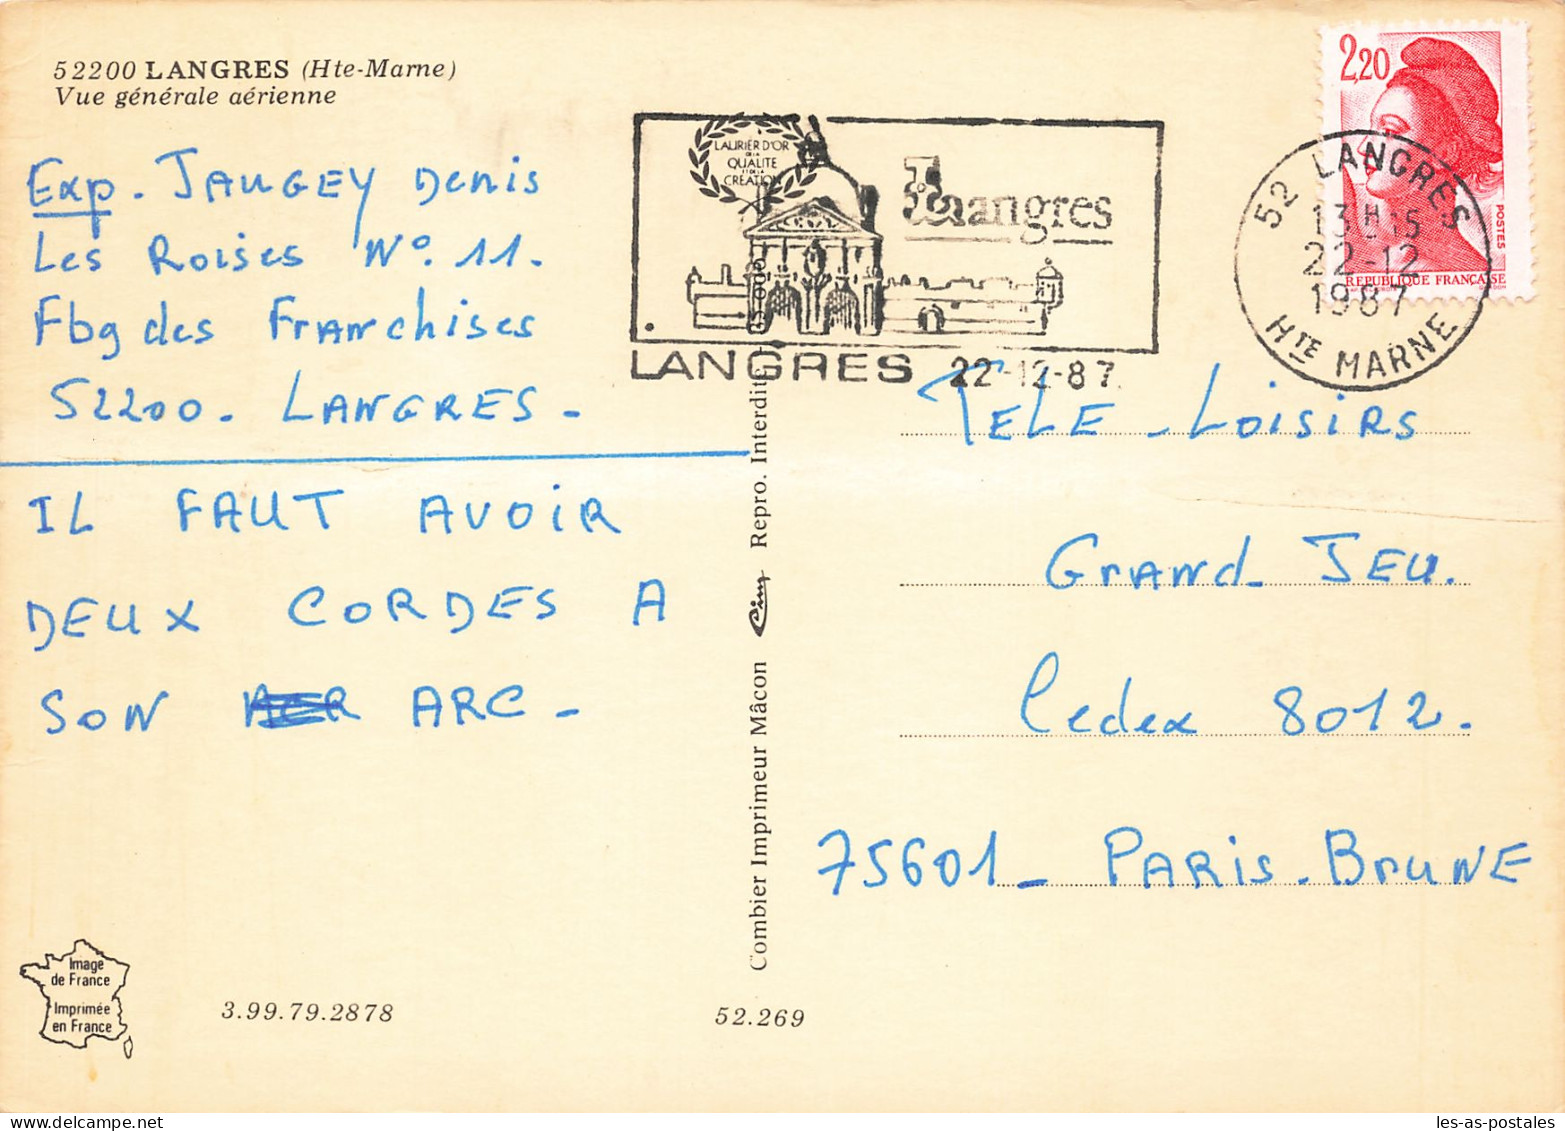 52200 LANGRES (Hte-Marne)
Vue générale aérienne
Exp. JAUGEY Denis
Les Roises N°. 11.
Fbg des Franchises
52200. LANGRES -
IL FAUT AVOIR
DEUX CORDES A
SON ARC -
Image
de France
Imprimée
en France
3.99.79.2878
52.269
Combier Imprimeur Mâcon Cim Repro. Interdite
LAURIER D'OR
DE LA
QUALITE
ET DE LA
CREATION
Langres
LANGRES 22-12-87
2,20
POSTES
REPUBLIQUE FRANÇAISE
52 LANGRES
22-12
1987
HTE MARNE
TELE - LOISIRS
GRAND JEU.
Cedex 8012.
75601 - PARIS - BRUNE
les-as-postales